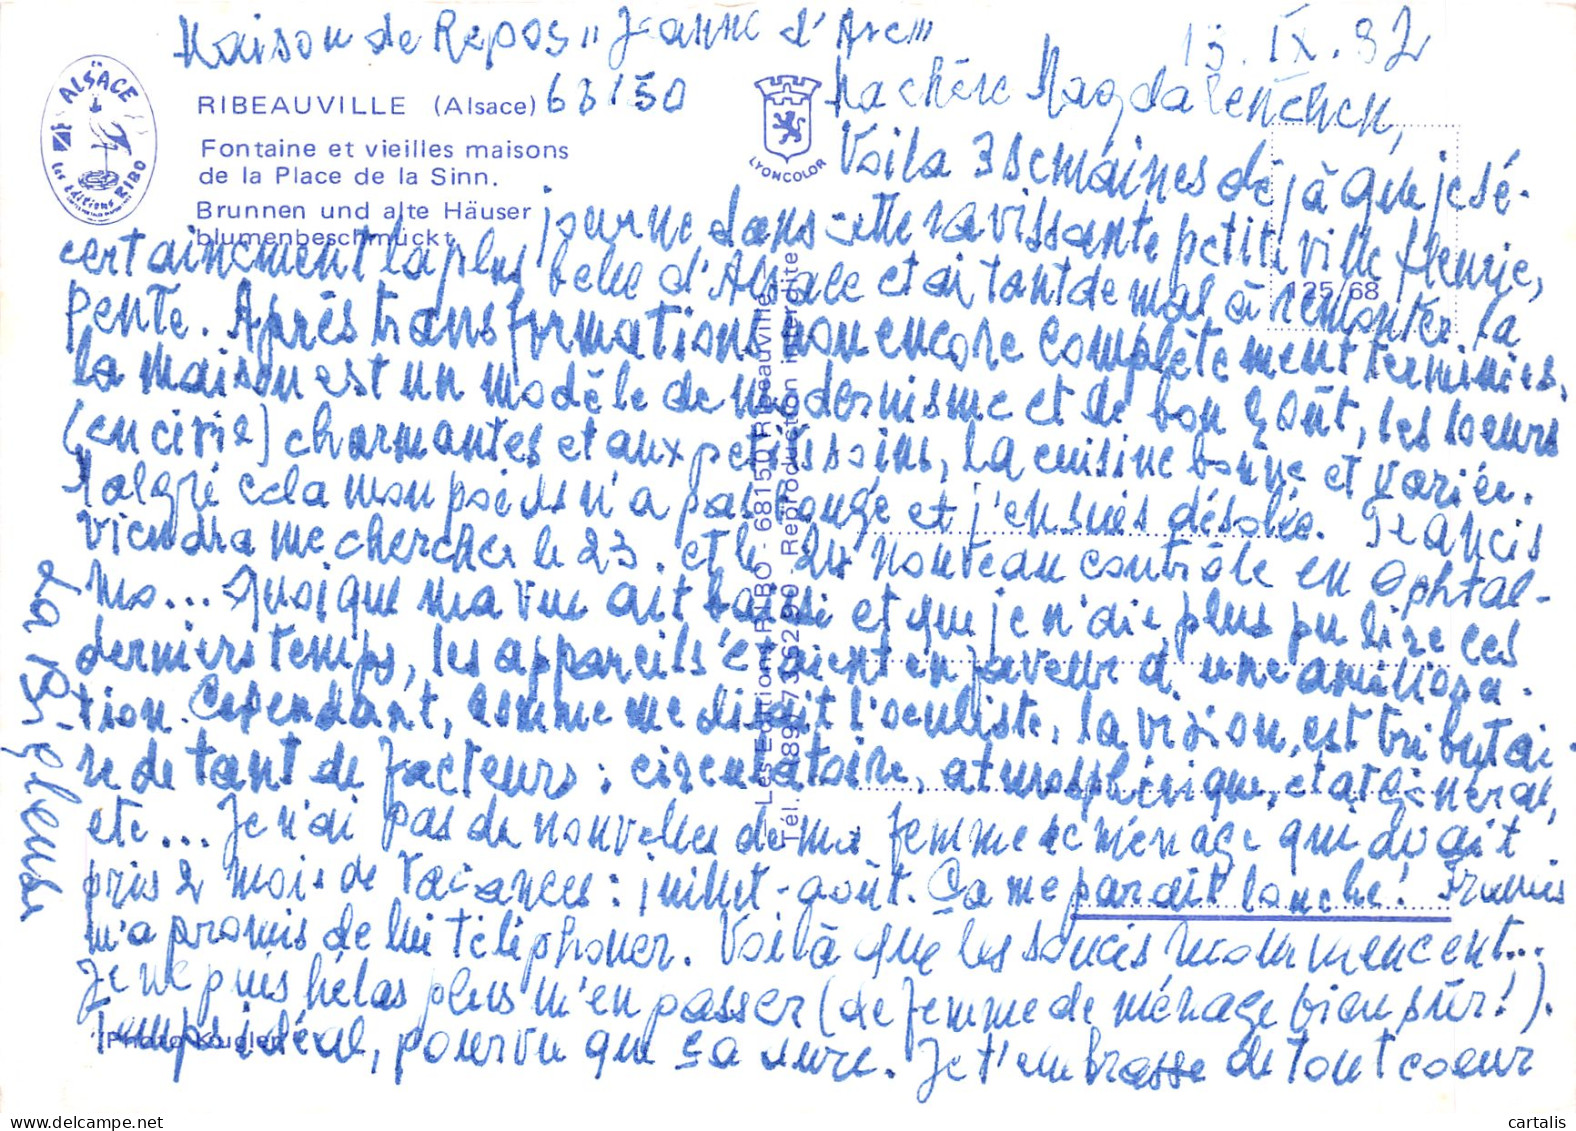 Maison de Repos "Jeanne d'Arc"
13.IX.82
ALSACE
Les Editions RIBO
RIBEAUVILLE (Alsace) 68150
Fontaine et vieilles maisons
de la Place de la Sinn.
Brunnen und alte Häuser
blumenbeschmückt
LYONCOLOR
125/68
Les Editions RIBO - 68150 Ribeauvillé
Tél. (89) 73 62 90 Reproduction interdite
Photo Kugler
Ma chère Magdalenchen,
Voila 3 semaines déjà que je sé-
journe dans cette ravissante petite ville fleurie,
certainement la plus belle d'Alsace et ai tant de mal à remonter la
pente. Après transformations non encore complètement terminées,
la maison est un modèle de modernisme et de bon goût, les soeurs
(en civil) charmantes et aux petits soins, la cuisine bonne et variée.
Malgré cela mon poids n'a pas bougé et j'en suis désolée. Francis
viendra me chercher le 23. et le 24 nouveau contrôle en Ophtal-
mo... Quoique ma vue ait baissé et que je n'aie plus pu lire ces
derniers temps, les appareils étaient en faveur d'une améliora-
tion. Cependant, comme me disait l'oculiste, la vision est tributai-
re de tant de facteurs: circulatoire, atmosphérique, état général,
etc... Je n'ai pas de nouvelles de ma femme de ménage qui avait
pris 2 mois de vacances: juillet-août. Ça me parait louche! Francis
m'a promis de lui téléphoner. Voilà que les soucis recommencent...
Je ne puis hélas plus m'en passer (de femme de ménage bien sûr!).
Temps idéal, pourvu que ça dure. Je t'embrasse de tout coeur